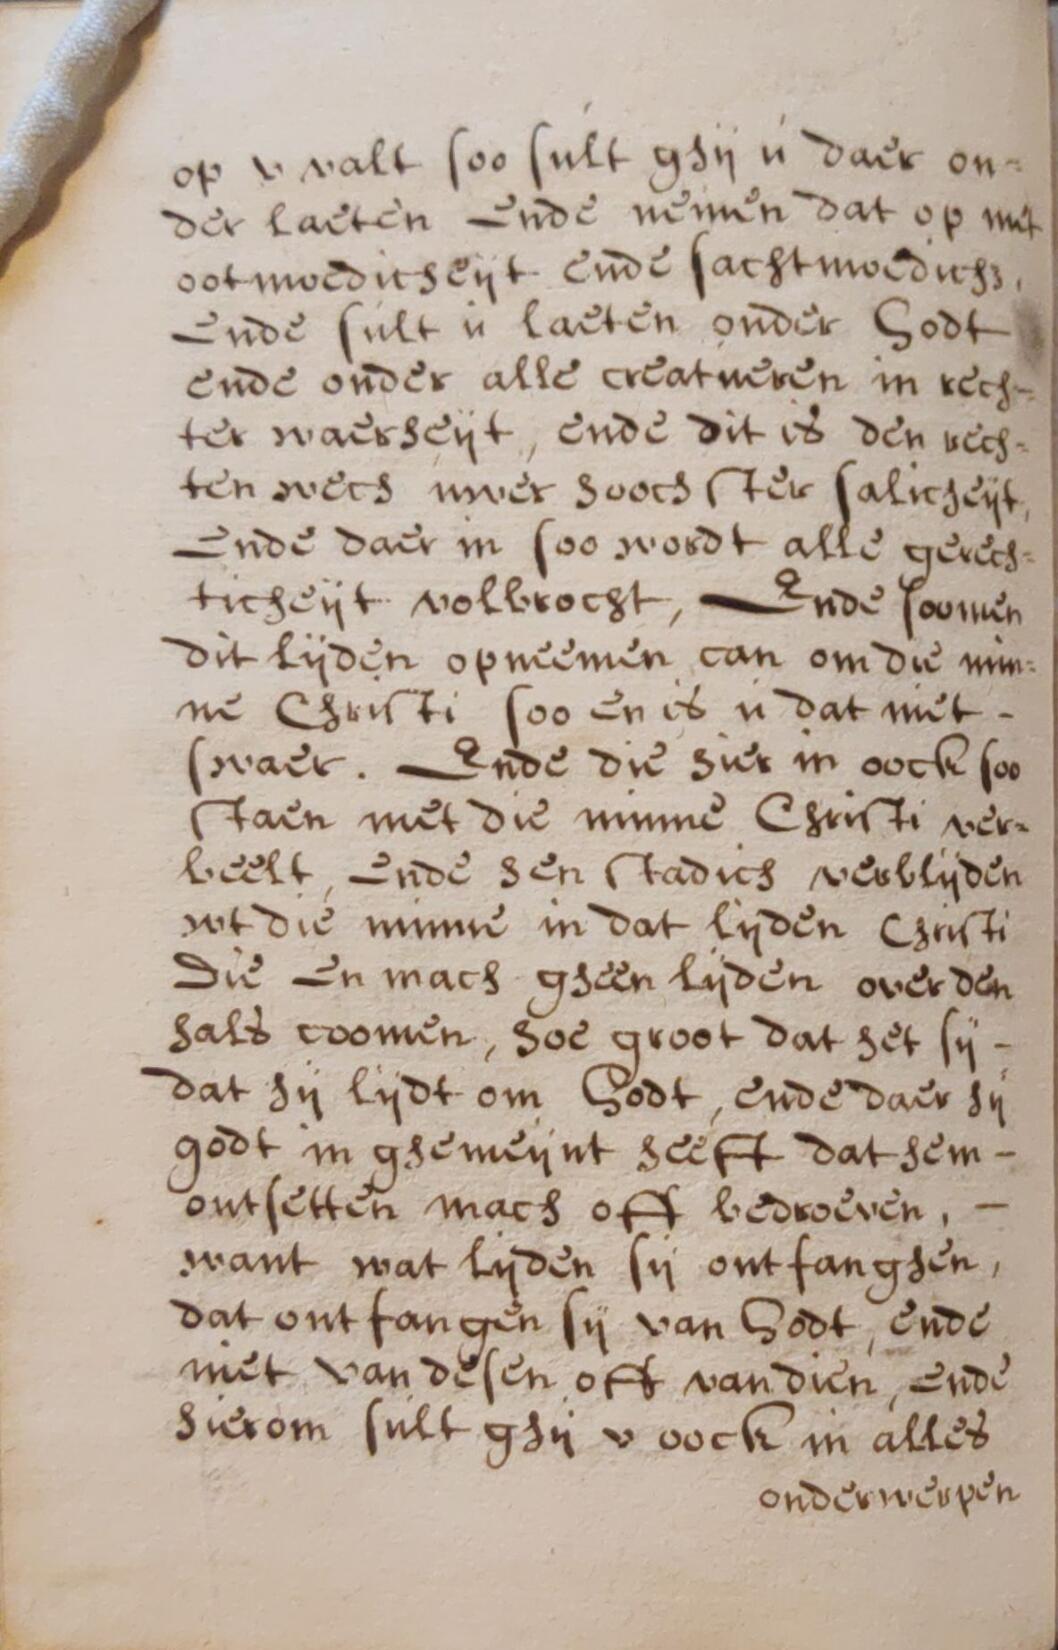 op v valt soo sult ghij u daer on=
der laeten Ende nemen dat op met
ootmoedicheijt ende sachtmoedich,
Ende sult u laeten onder Godt
ende onder alle creatueren in rech=
ter waerheijt, ende dit is den rech=
ten wech uwer hoochster salicheijt,
Ende daer in soo wordt alle gerech=
ticheijt volbrocht, Ende soomen
dit lijden opneemen can om die min=
ne Christi soo en is u dat niet -
swaer. Ende die hier in oock soo
staen met die minne Christi ver=
beelt, ende hen stadich verblijden
wt die minne in dat lijden Christi
Die en mach gheen lijden over den
hals coomen, hoe groot dat het sij -
dat hij lijdt om Godt, ende daer hij
godt in ghemeijnt heeft dat hem -
ontsetten mach off bedroeven, -
want wat lijden sij ontfanghen,
dat ontfangen sij van Godt, ende
niet van desen off van dien, Ende
hierom sult ghij v oock in alles
onderwerpen